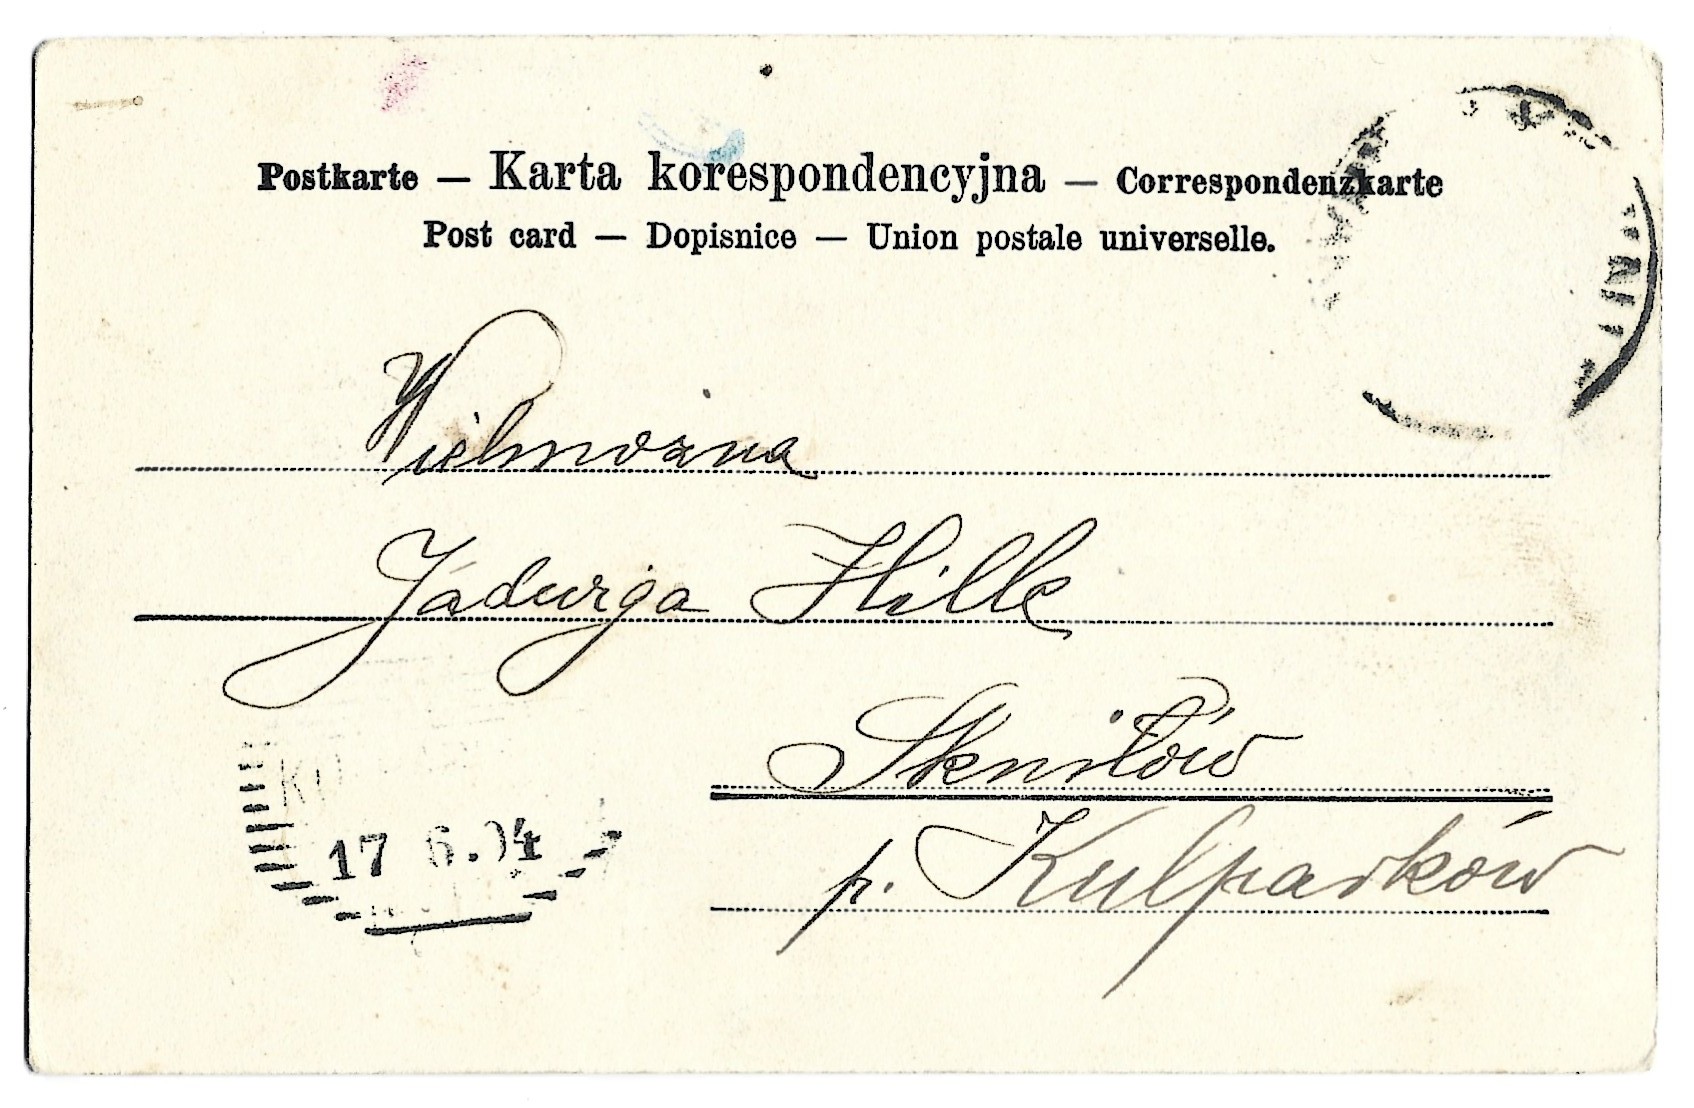 Postkarte — Karta korespondencyjna — Correspondenzkarte
Post card — Dopisnice — Union postale universelle.
Wielmożna
Jadwiga Hille
Skniłów
p. Kulparków
17 6.04